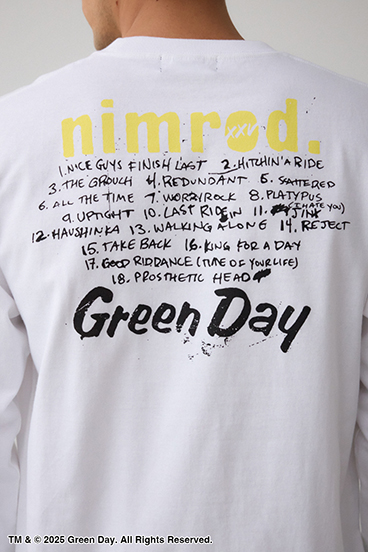 nimrod.
XXV
1. NICE GUYS FINISH LAST 2. HITCHIN' A RIDE
3. THE GROUCH 4. REDUNDANT 5. SCATTERED
6. ALL THE TIME 7. WORRY ROCK 8. PLATYPUS
(I HATE YOU)
9. UPTIGHT 10. LAST RIDE IN 11. JINX
12. HAUSHINKA 13. WALKING ALONG 14. REJECT
15. TAKE BACK 16. KING FOR A DAY
17. GOOD RIDDANCE (TIME OF YOUR LIFE)
18. PROSTHETIC HEAD
Green Day
TM & © 2025 Green Day. All Rights Reserved.